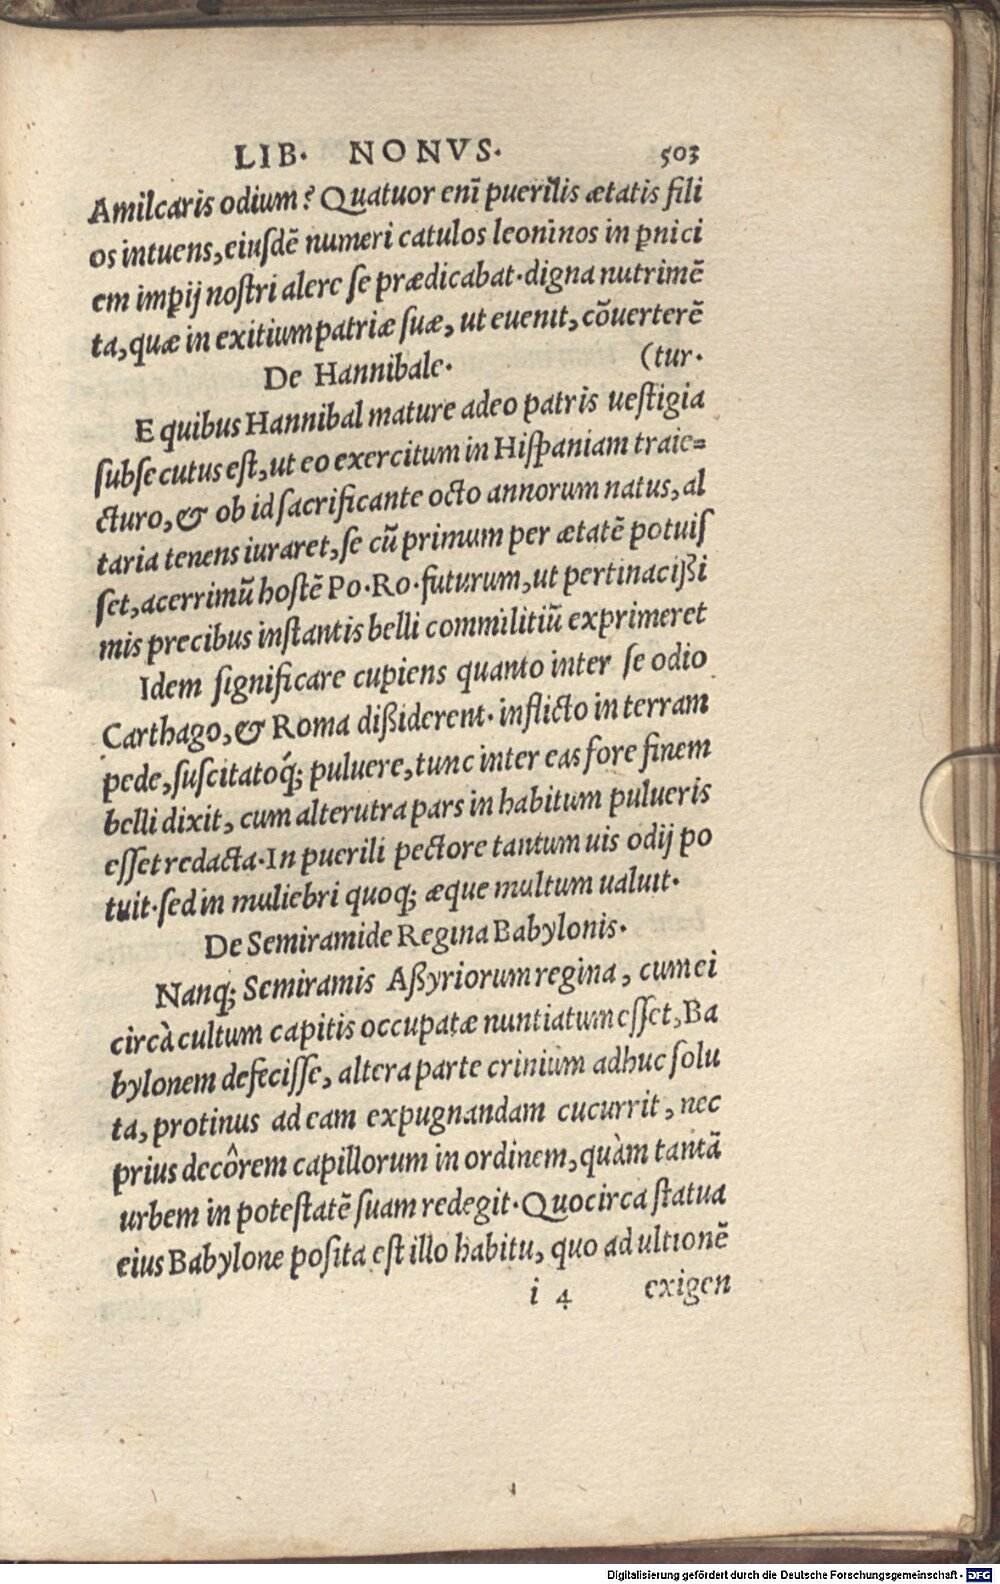 LIB. NONVS. 503
Amilcaris odium? Quatuor enī puerilis ætatis fili
os intuens, eiuſdē numeri catulos leoninos in ꝑnici
em impij noſtri alere ſe prædicabat. digna nutrimē
ta, quæ in exitium patriæ ſuæ, ut euenit, cōuerterē
De Hannibale. (tur.
E quibus Hannibal mature adeo patris ueſtigia
ſubſecutus eſt, ut eo exercitum in Hiſpaniam traie=
cturo, & ob id ſacrificante octo annorum natus, al
taria tenens iuraret, ſe cū primum per ætatē potuiſ
ſet, acerrimū hoſtē Po. Ro. futurum, ut pertinacißi
mis precibus inſtantis belli commilitiū exprimeret
Idem ſignificare cupiens quanto inter ſe odio
Carthago, & Roma dißiderent. inflicto in terram
pede, ſuſcitatoq́; puluere, tunc inter eas fore finem
belli dixit, cum alterutra pars in habitum pulueris
eſſet redacta. In puerili pectore tantum uis odij po
tuit. ſed in muliebri quoq; æque multum ualuit.
De Semiramide Regina Babylonis.
Nanq; Semiramis Aßyriorum regina, cum ei
circà cultum capitis occupatæ nuntiatum eſſet, Ba
bylonem defeciſſe, altera parte crinium adhuc ſolu
ta, protinus ad eam expugnandam cucurrit, nec
prius decôrem capillorum in ordinem, quàm tantā
urbem in poteſtatē ſuam redegit. Quocirca ſtatua
eius Babylone poſita eſt illo habitu, quo ad ultionē
i 4 exigen
Digitalisierung gefördert durch die Deutsche Forschungsgemeinschaft - DFG